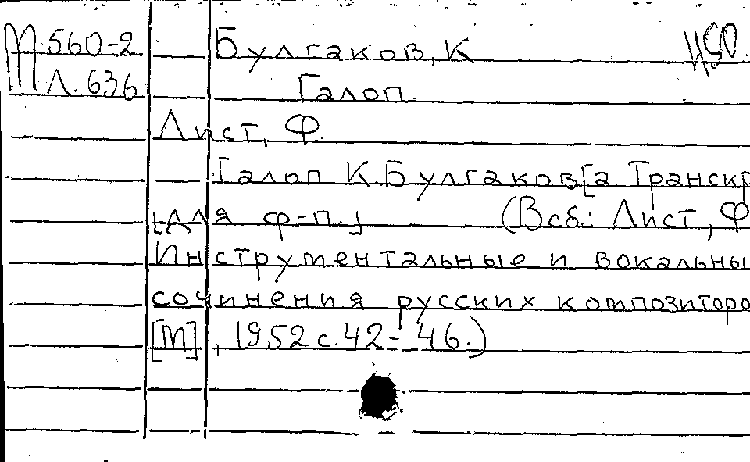 М 560-2 Булгаков, К
Л. 636 Галоп
Лист, Ф.
Галоп К. Булгаков[а Транскр
[для ф-п.] (В сб.: Лист, Ф
Инструментальные и вокальны
сочинения русских композиторо
[М], 1952 с. 42-46.)